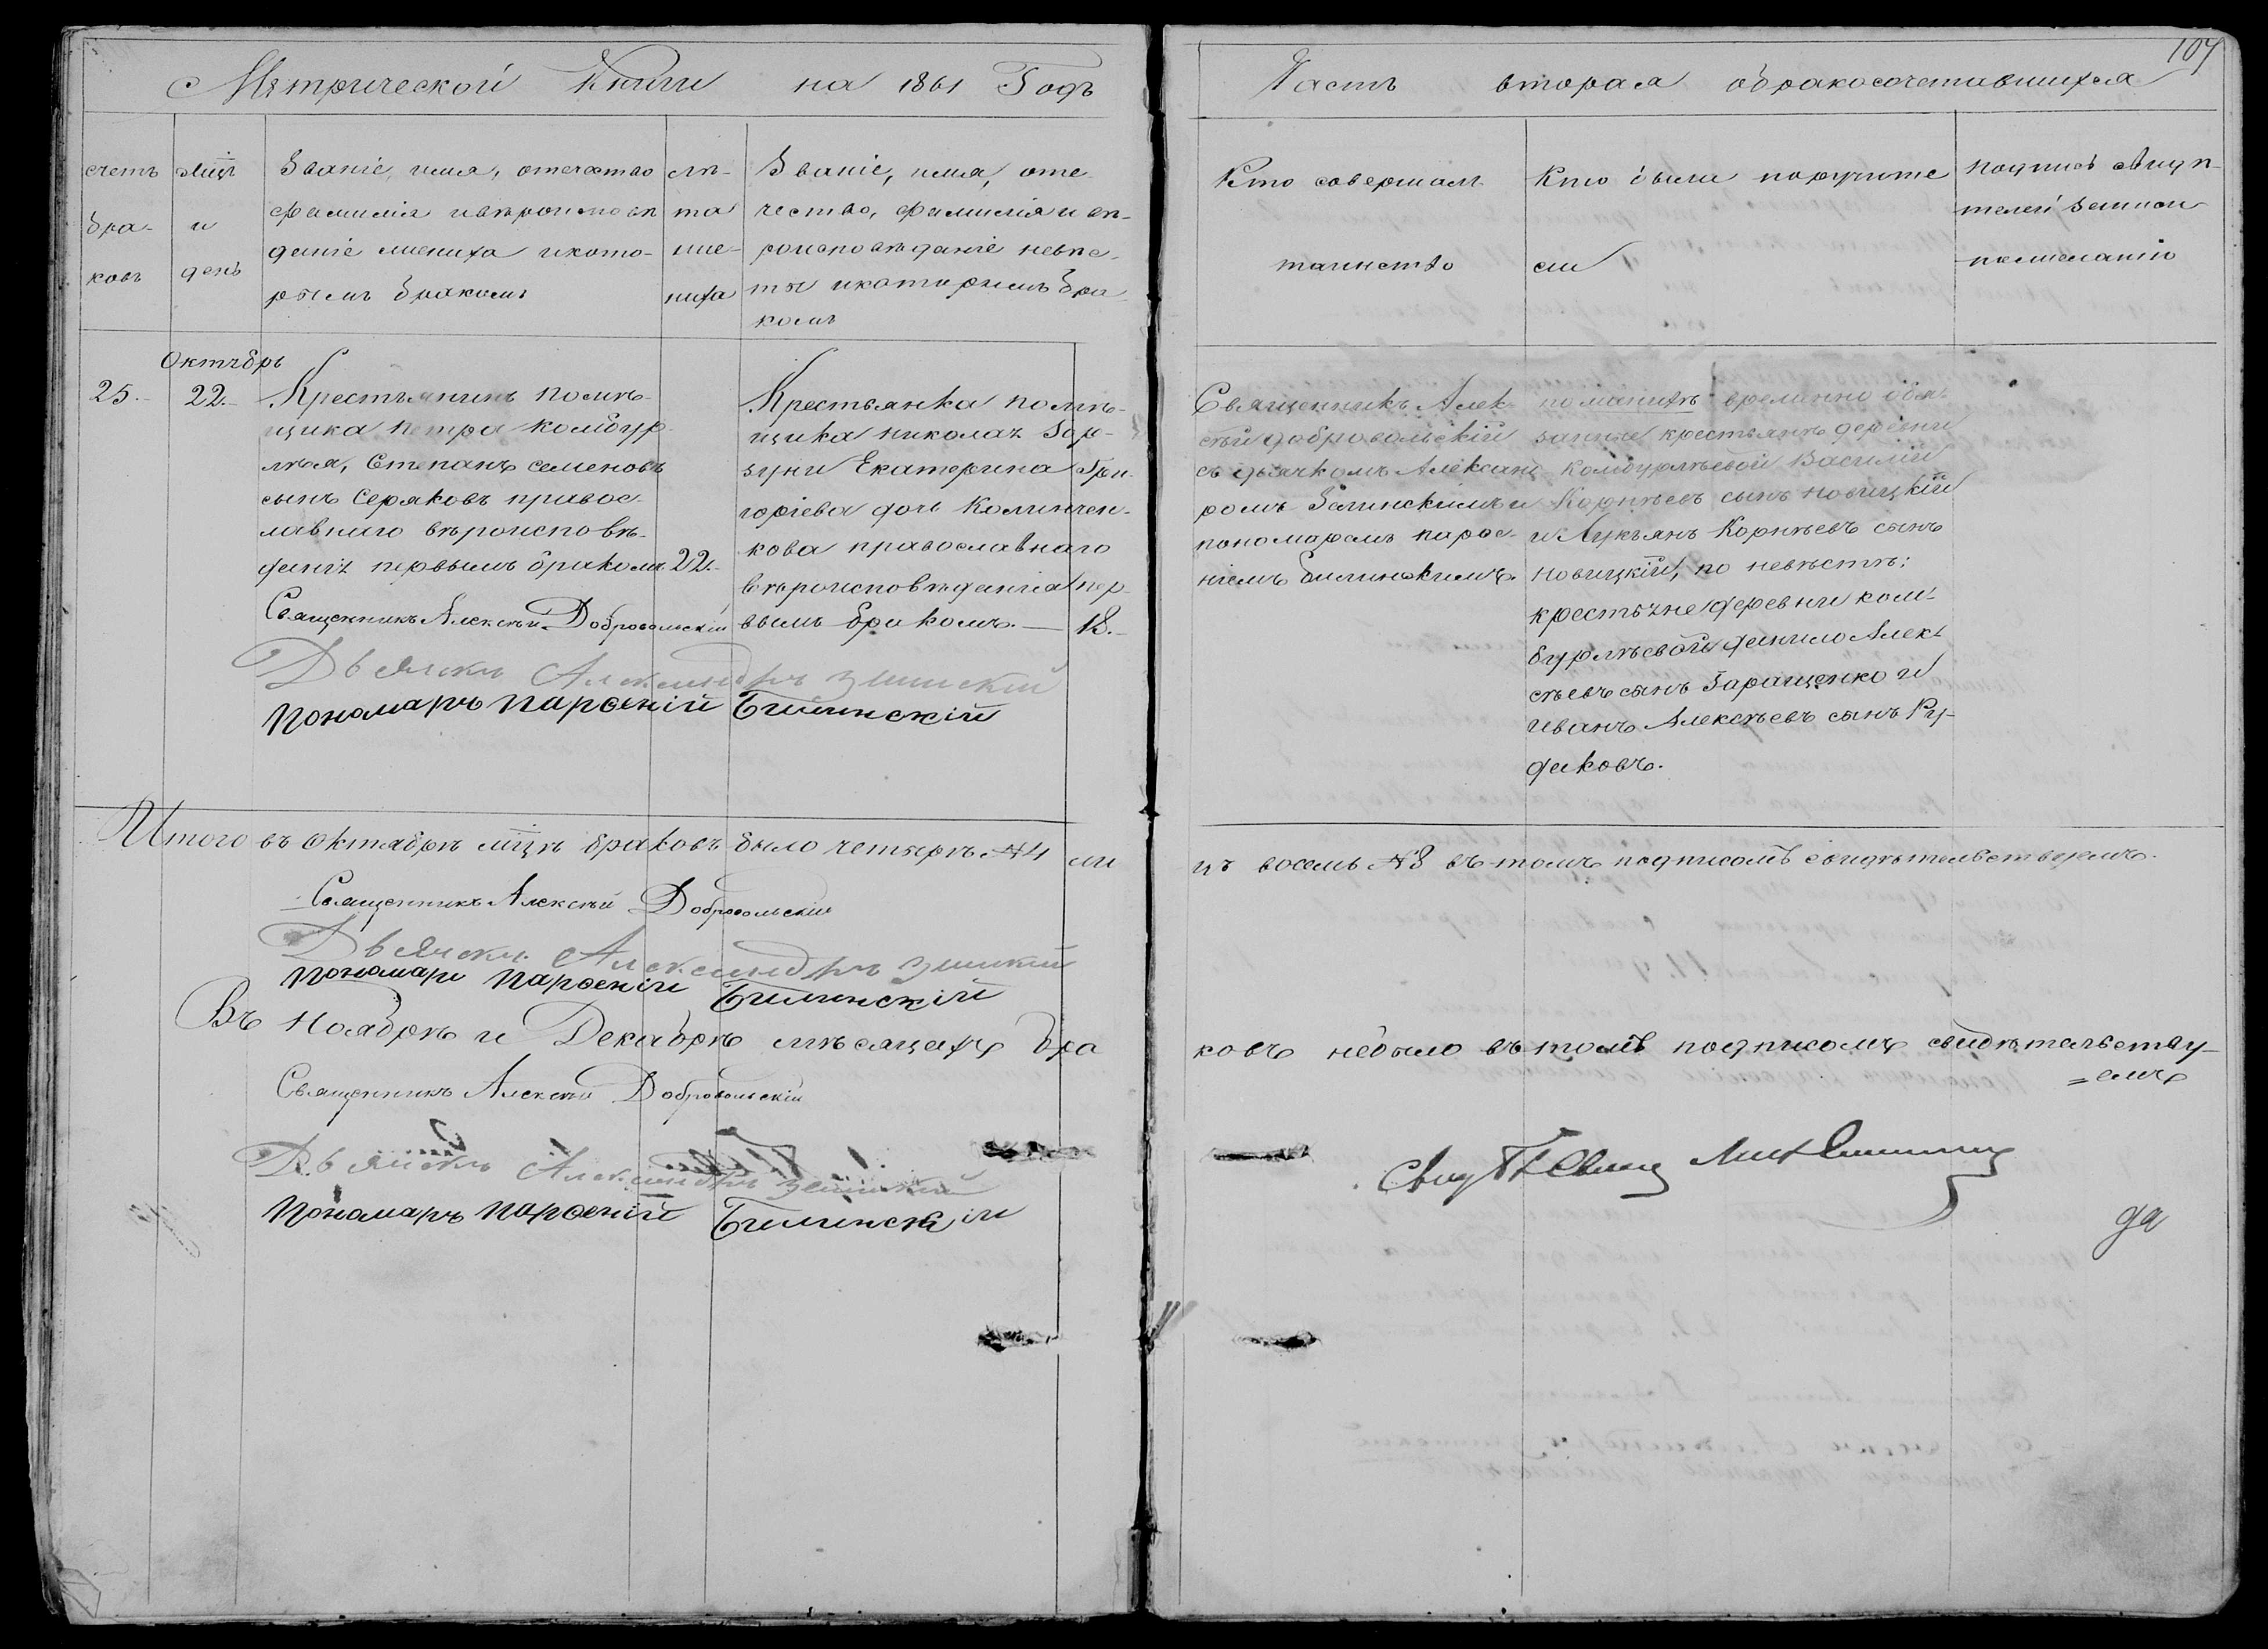 Метрической Книги на 1861 Годъ
Часть вторая обракосочетавшихся
107
счетъ
бра-
ковъ
мцъ
и
день
Званіе, имя, отечество
фамилія ивѣроисповѣ
даніе жениха икото-
рымъ бракомъ
лѣ-
та
же-
ниха
Званіе, имя, оте-
чество, фамилія и вѣ-
роисповѣданіе невѣс-
ты икоторымъ бра
комъ
Кто совершалъ
таинство
Кто были поручите
ли
подпись свидѣ-
телей записи
пожеланію
Октябрь
25.
22.
Крестьянинъ помѣ-
щика Петра Комбур
лѣя, Степанъ Семеновъ
сынъ Серяковъ правос-
лавнаго вѣроисповѣ-
данія первымъ бракомъ
22.
Крестьянка помѣ-
щика Николая
Екатерина Гри-
горіева дочь
кова православнаго
вѣроисповѣданія пер-
вымъ бракомъ.
18.
Священникъ Алек-
сѣй Добровольскій
съ дьячкомъ Александ
ромъ Зелинскимъ и
пономаремъ Парѳе-
ніемъ Билинскимъ.
по женихѣ временно обя-
занные крестьянѣ деревни
Комбурлѣевой Василій
Корнѣевъ сынъ Новицкій
и Лукьянъ Корнѣевъ сынъ
Новицкій, по невѣстѣ:
крестьяне деревни Ком-
бурлѣевой Данило Алек-
сѣевъ сынъ Заращенко и
Иванъ Алексѣевъ сынъ Ру-
даковъ.
Священникъ Алексѣй Добровольскій
Дьячокъ Александръ
Пономарь Парѳеній Билинскій
Итого въ Октябрѣ мцѣ браковъ было четырѣ №4 ли
цъ восемь №8 въ томъ подписомъ свидѣтельствуемъ.
Священникъ Алексѣй Добровольскій
Дьячокъ Александръ
Пономарь Парѳеній Билинскій
Въ Ноябрѣ и Декабрѣ мѣсяцахъ бра
ковъ небыло въ томъ подписомъ свидѣтельству-
=емъ
Священникъ Алексѣй Добровольскій
Дьячокъ Александръ
Пономарь Парѳеній Билинскій